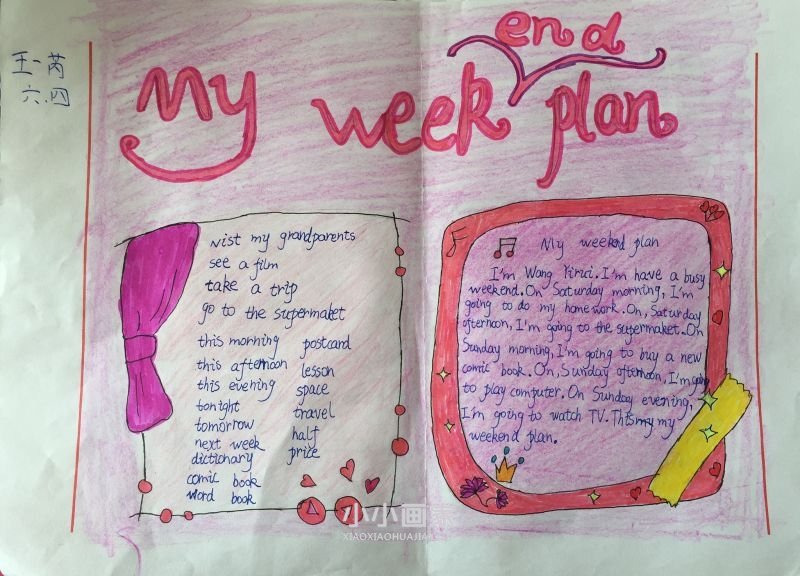 王一芮
六.四
end
My week plan
visit my grandparents
see a film
take a trip
go to the supermaket
this morning postcard
this afternoon lesson
this evening space
tonight travel
tomorrow half
next week price
dictionary
comic book
word book
My weekend plan
I'm Wang Yirui. I'm have a busy
weekend. On Saturday morning, I'm
going to do my homework. On, Saturday
afternoon, I'm going to the supermaket. On
Sunday morning, I'm going to buy a new
comic book. On, Sunday afternoon, I'm going
to play computer. On Sunday evening,
I'm going to watch TV. This my my
weekend plan.
小小画家
XIAOXIAOHUAJIA